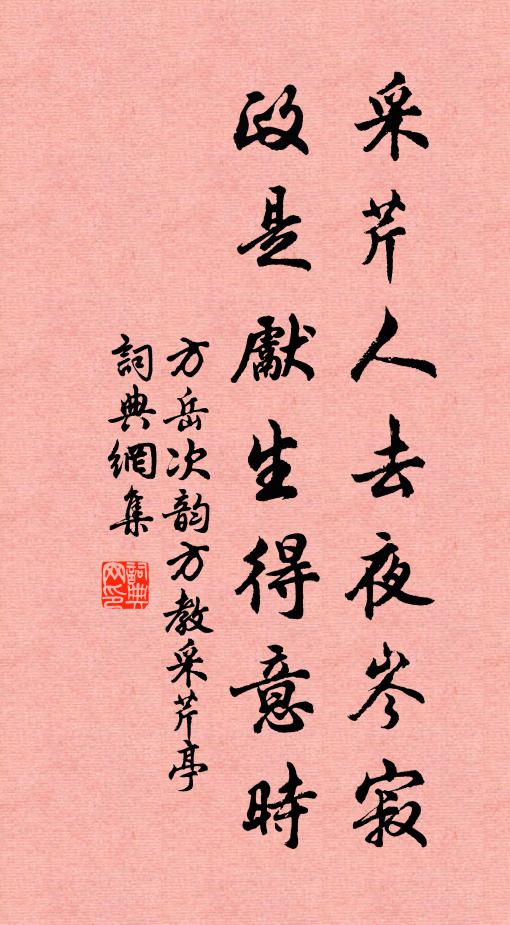 采芹人去夜岑寂
政是獻生得意時
方岳次韵方教采芹亭
詞典網集
詞典網印